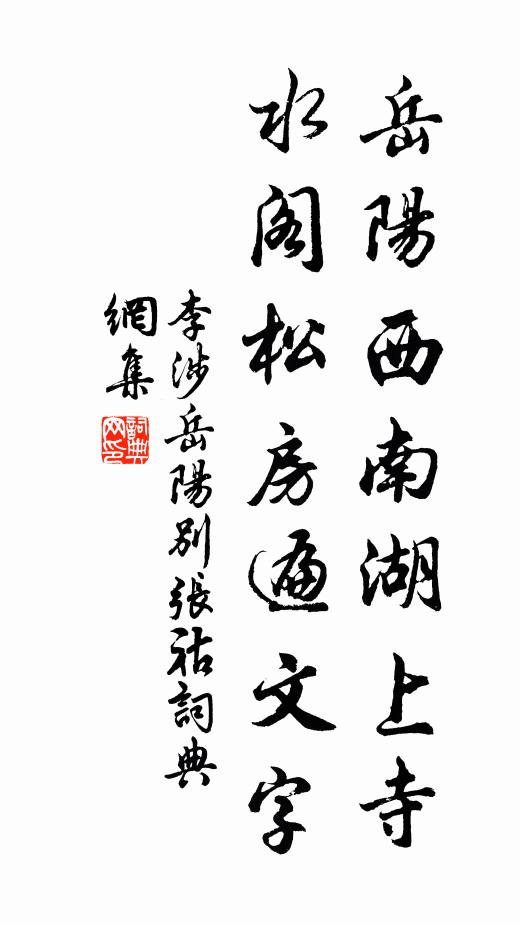 岳陽西南湖上寺
水阁松房遍文字
李涉岳陽别張祜詞典
網集
詞典网印